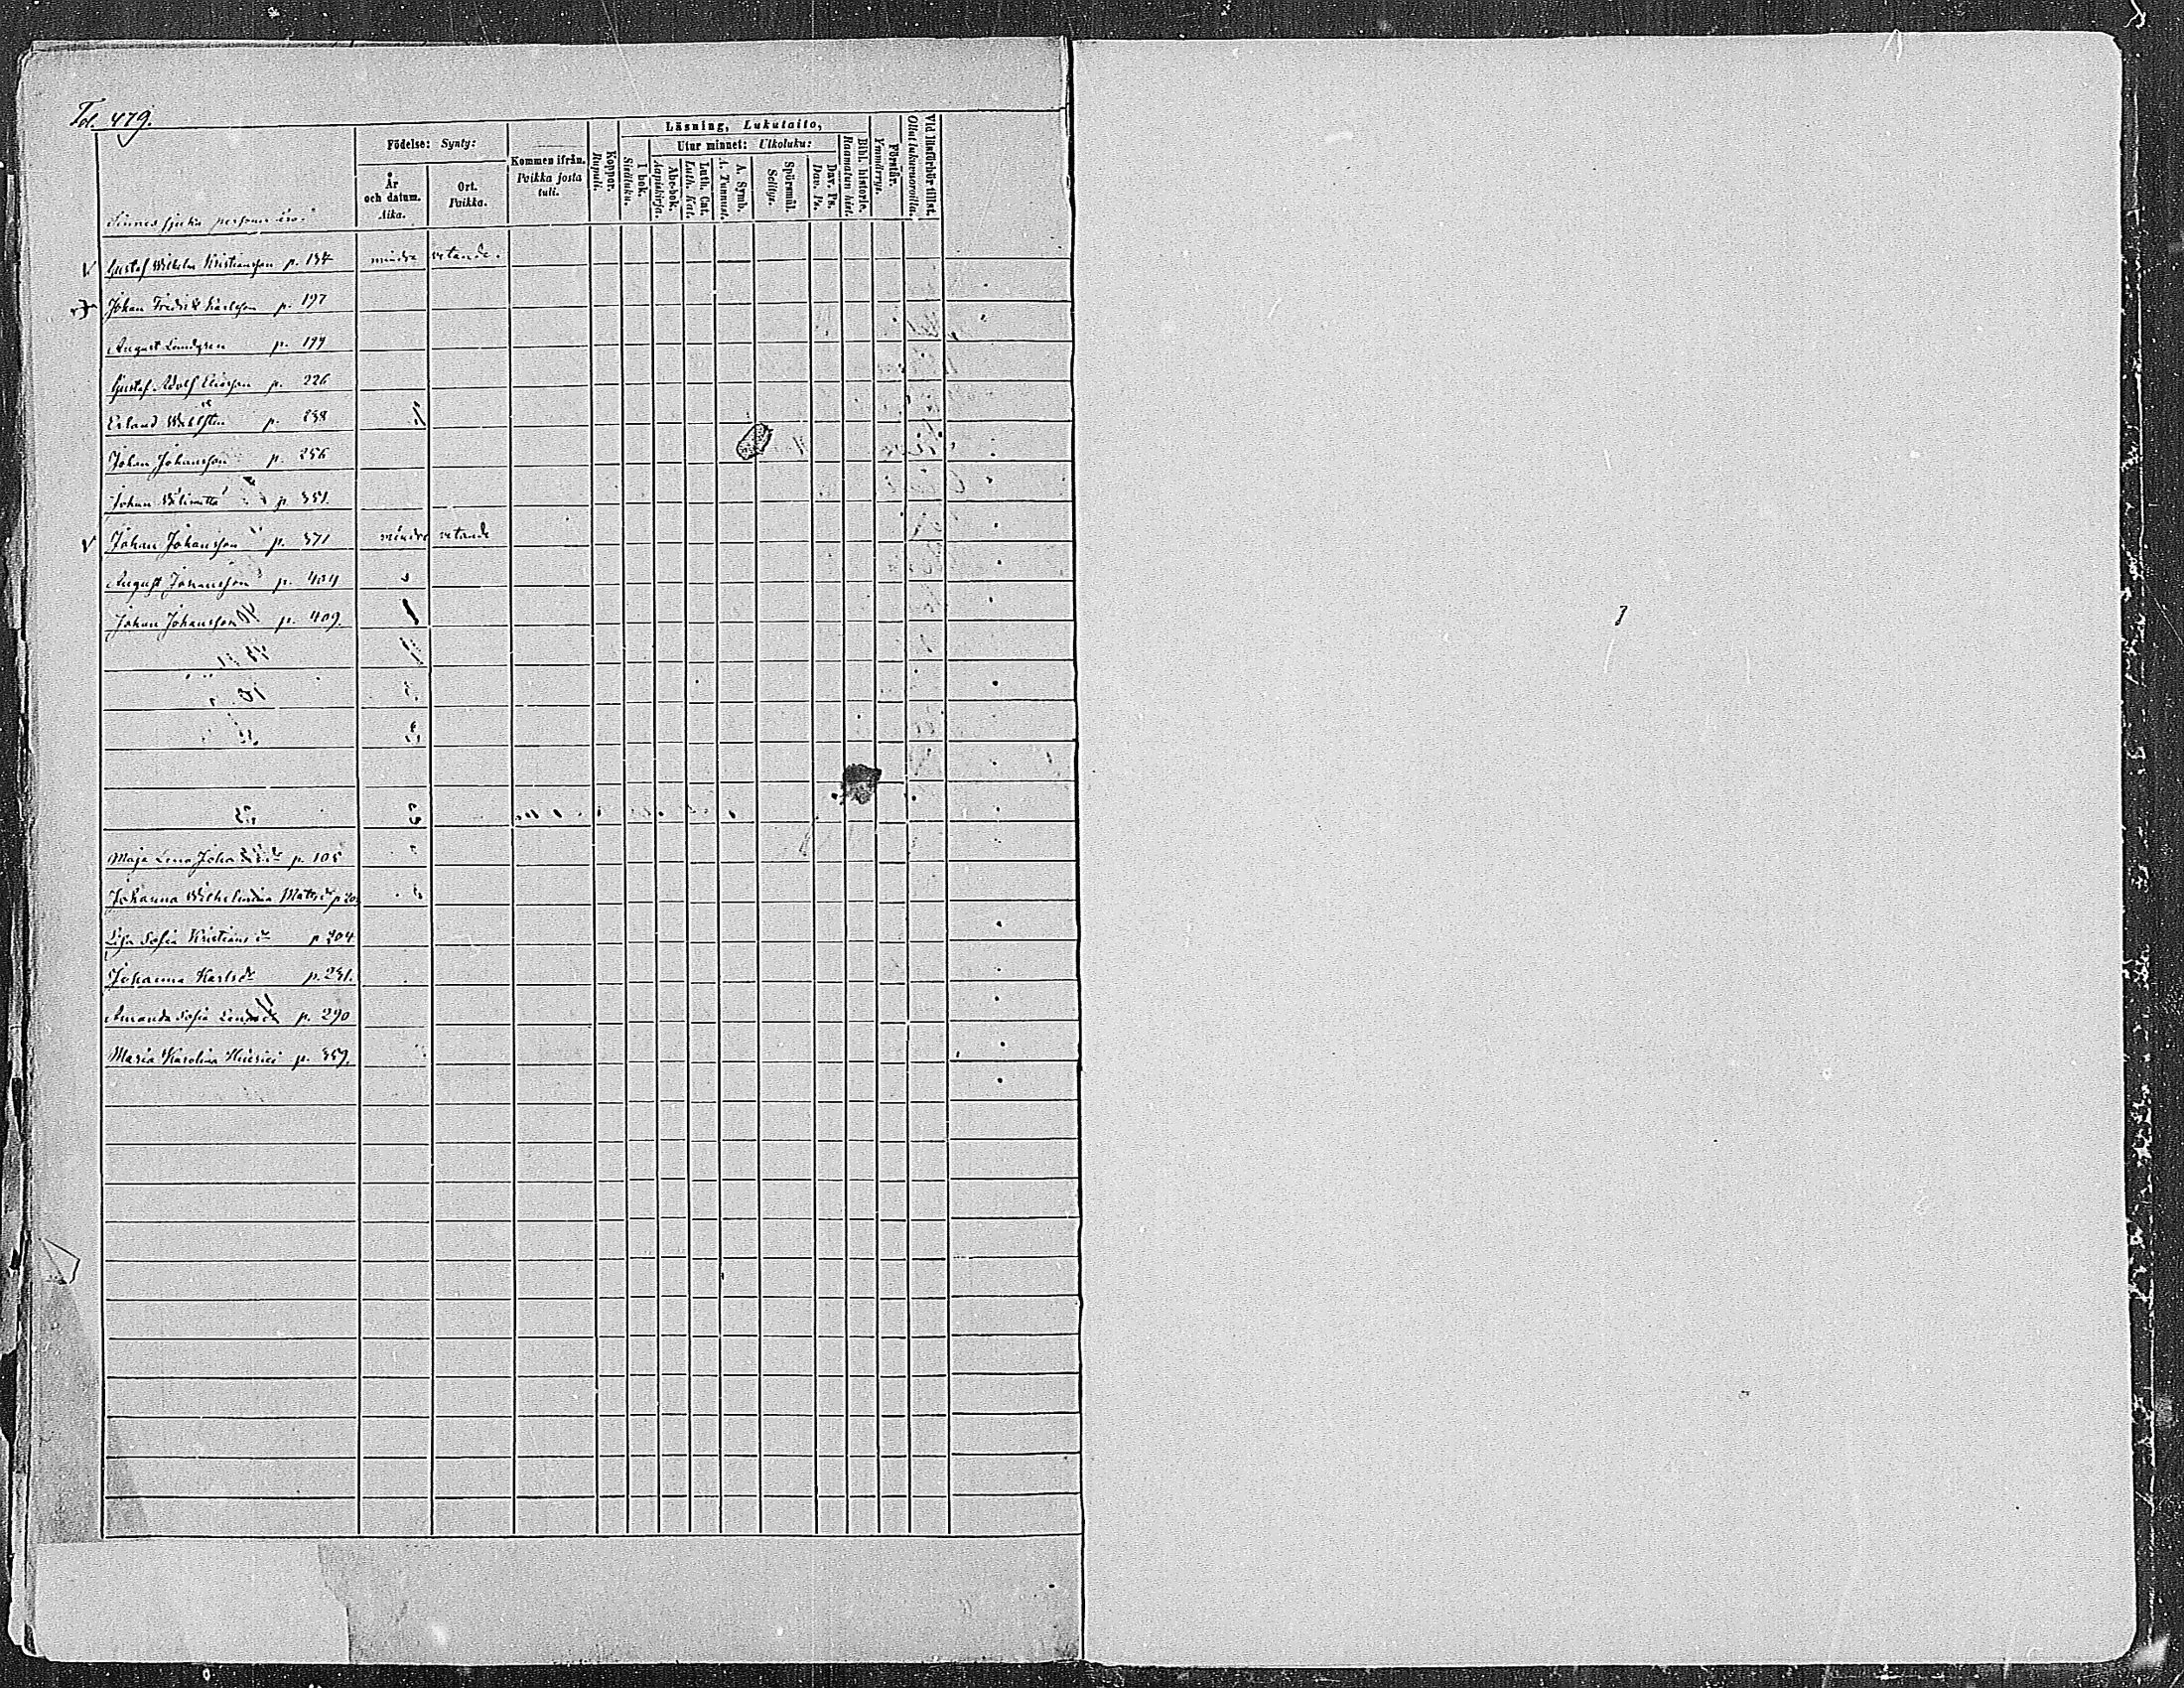 Fol. 479.
Födelse: Synty:
År och datum. Aika.
Ort. Paikka.
Kommen ifrån. Paikka josta tuli.
Koppor. Rupuli.
Läsning, Lukutaito,
I bok. Sisäluku.
Utur minnet: Ulkoluku:
Abc-bok. Aapiskirja.
Luth. Cat. Luth. Kat.
A. Symb. A. Tunnust.
Spörsmål. Selitys.
Dav. Ps. Dav. Ps.
Bibl. historie. Raamatun hist.
Förstår. Ymmärrys.
Vid läsförhör tillst. Ollut lukuvuoroilla.
Sinnessjuka personer äro:
Gustaf Wilhelm Kristiansson p. 134 mindre vetande.
Johan Fredrik Karlsson p. 197
August Lundgren p. 199
Gustaf Adolf Eliasson p. 226
Erland p. 238
Johan Johansson p. 256
Johan p. 351.
Johan Johansson p. 371 mindre vetande
August Johansson p. 404
Johan Johansson p. 409.
Maja Lena p. 105
Johanna Wilhelmina Matsdr
Lisa Sofia Kristiansdr p. 204
Johanna Karlsdr p. 231.
Amanda Sofia p. 290
Maria Karolina p. 359.